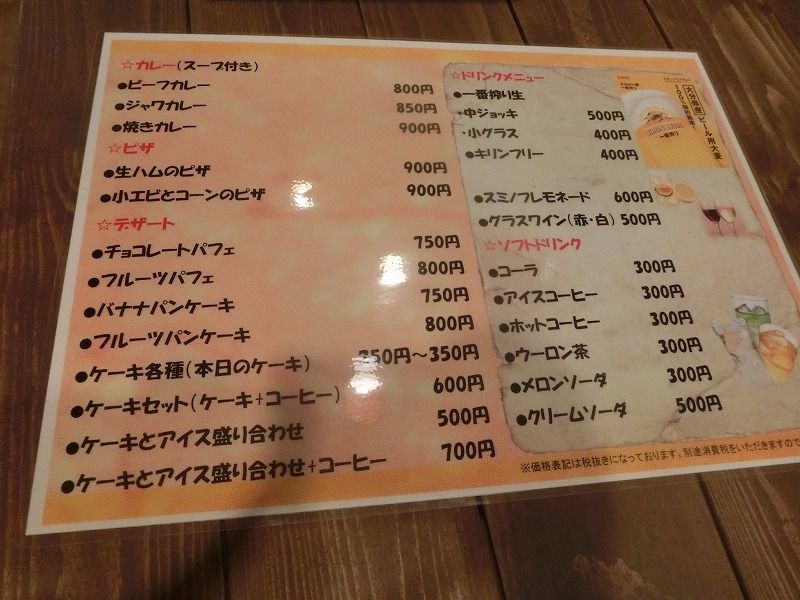 ☆カレー(スープ付き)
●ビーフカレー 800円
●ジャワカレー 850円
●焼きカレー 900円
☆ピザ
●生ハムのピザ 900円
●小エビとコーンのピザ 900円
☆デザート
●チョコレートパフェ 750円
●フルーツパフェ 800円
●バナナパンケーキ 750円
●フルーツパンケーキ 800円
●ケーキ各種(本日のケーキ) 350円～350円
●ケーキセット(ケーキ+コーヒー) 600円
●ケーキとアイス盛り合わせ 500円
●ケーキとアイス盛り合わせ+コーヒー 700円
☆ドリンクメニュー
●一番搾り生
・中ジョッキ 500円
・小グラス 400円
●キリンフリー 400円
●スミノフレモネード 600円
●グラスワイン(赤・白) 500円
☆ソフトドリンク
●コーラ 300円
●アイスコーヒー 300円
●ホットコーヒー 300円
●ウーロン茶 300円
●メロンソーダ 300円
●クリームソーダ 500円
※価格表記は税抜きになっております。別途消費税をいただきますので
大分県産 ビール用大麦
一番搾り